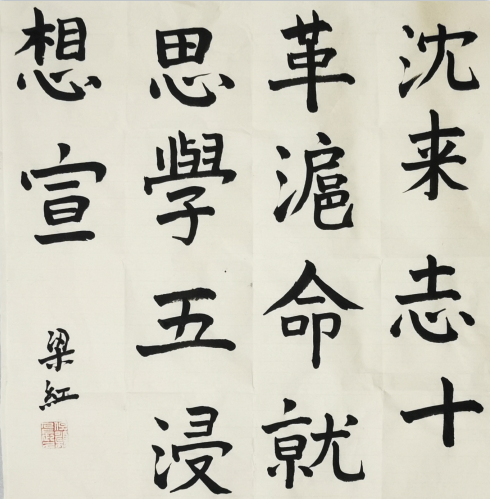 沈来志十
革滬命就
思學五浸
想宣
梁紅